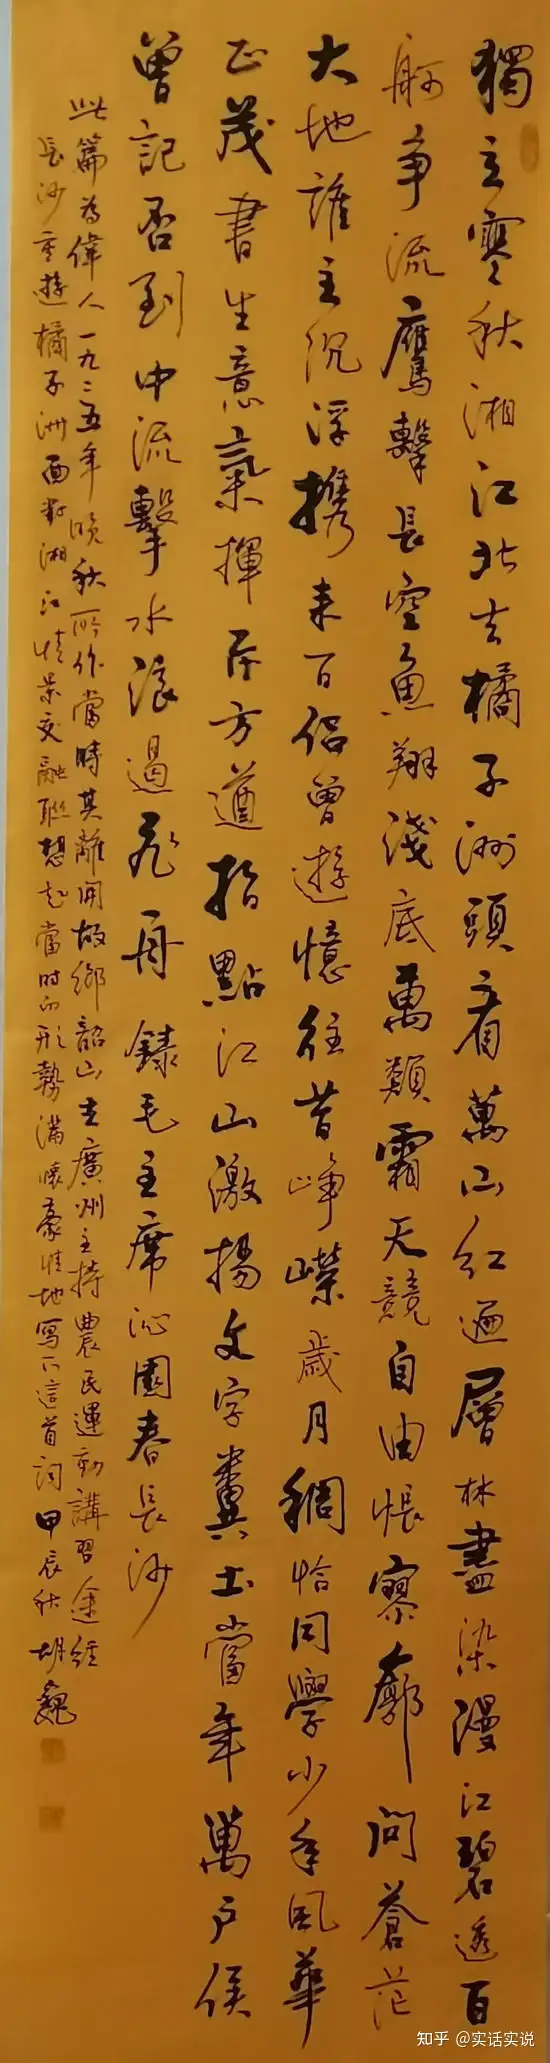 獨立寒秋湘江北去橘子洲頭看萬山紅遍層林盡染漫江碧透百
舸争流鷹擊長空魚翔淺底萬類霜天競自由悵寥廓問蒼茫
大地誰主沉浮携来百侣曾遊憶往昔峥嶸歲月稠恰同學少年風華
正茂書生意氣揮斥方遒指點江山激揚文字糞土當年萬户侯
曾記否到中流擊水浪遏飛舟録毛主席沁園春長沙
此篇為偉人一九二五年晚秋所作當時其離開故鄉韶山去廣州主持農民運動講習途經
長沙重遊橘子洲面对湘江情景交融聯想起當时的形勢滿懷豪情地寫下這首詞甲辰秋胡巍
知乎 @实话实说